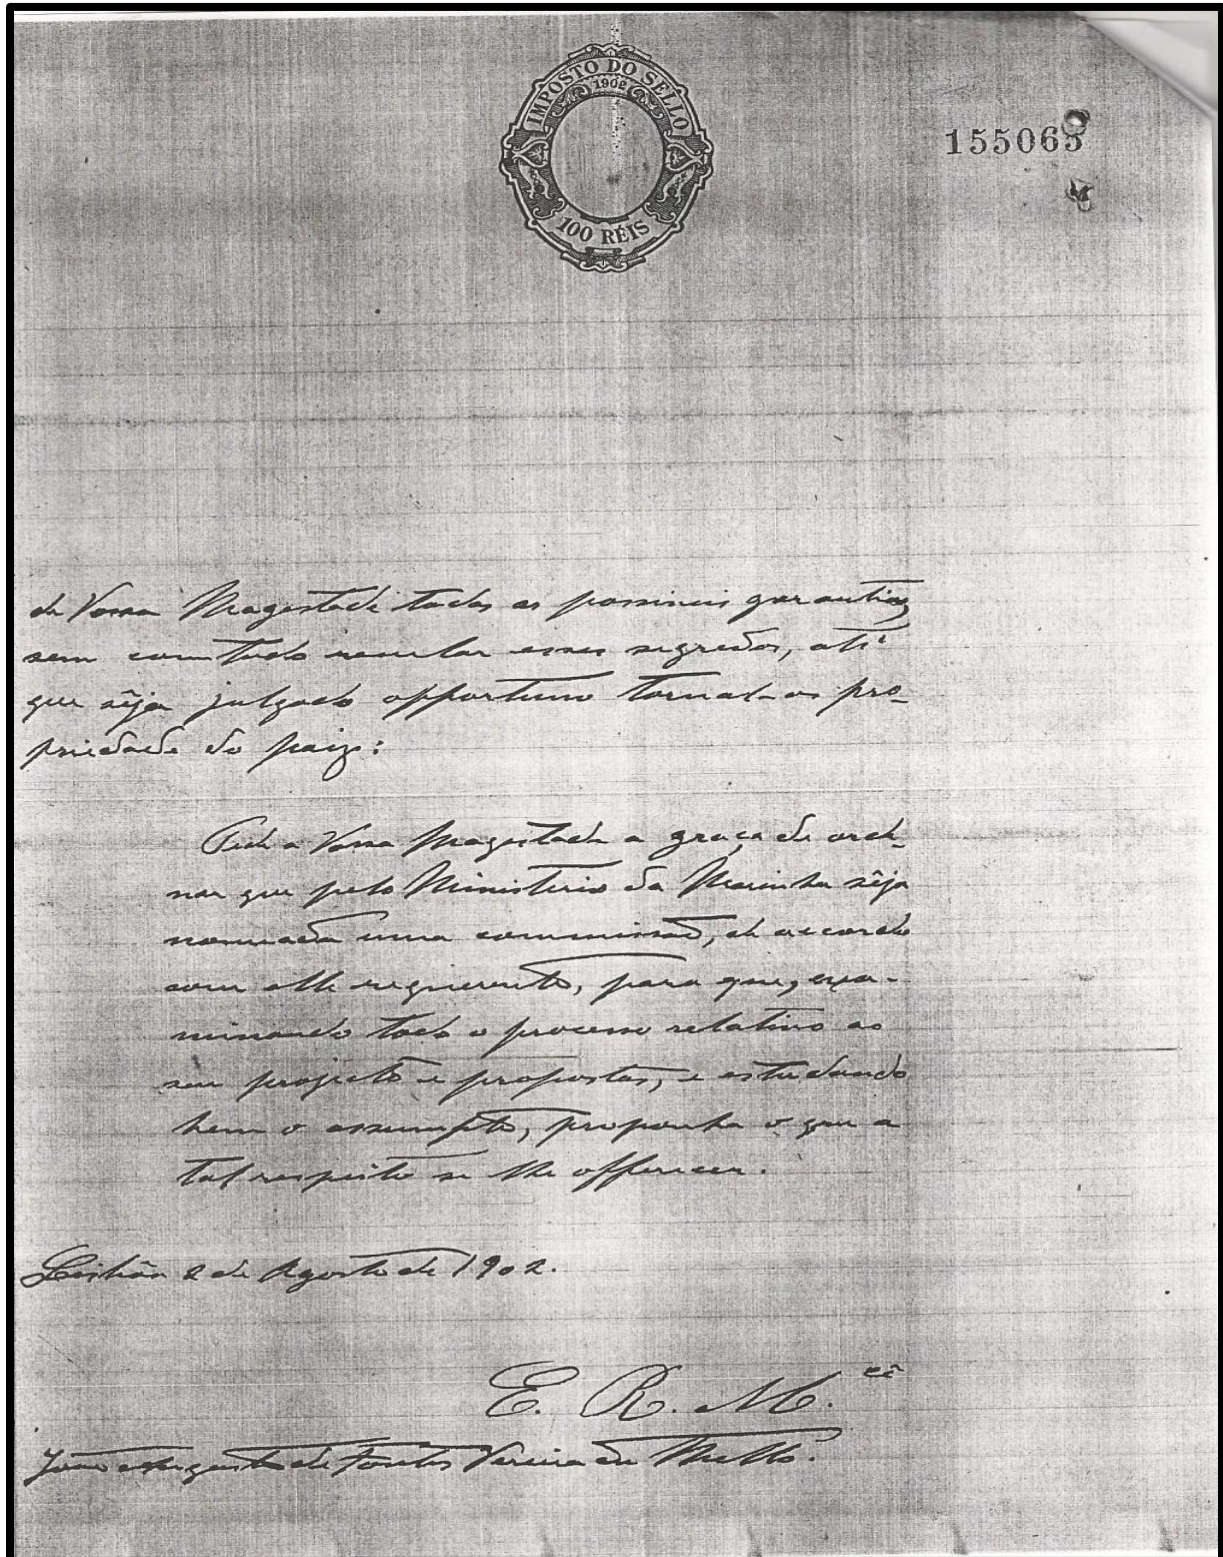 IMPOSTO DO SELLO
1902
100 RÉIS
155065
de Vossa Magestade todas as possiveis garantias
sem comtudo revelar esses segredos, até
que sêja julgado opportuno tornal-os pro-
priedade do paiz:
Pede a Vossa Magestade a graça de orde-
nar que pelo Ministerio da Marinha sêja
nomeada uma commissão, de accordo
com elle requerente, para que, exa-
minando todo o processo relativo ao
seu projecto e propostas, e estudando
bem o assumpto, proponha o que a
tal respeito se lhe offerecer.
Lisbôa 2 de Agosto de 1902.
E. R. M.cê
João Augusto de Fontes Pereira de Mello.